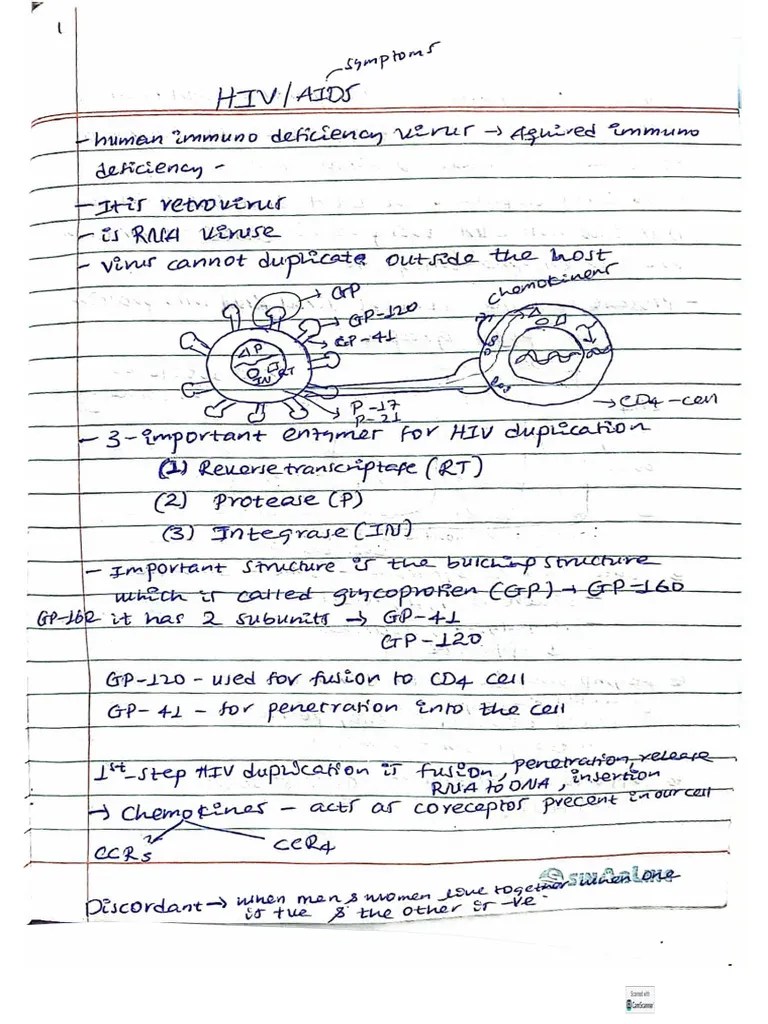 1
symptoms
HIV/AIDS
- human immuno deficiency virus → Aquired immuno
deficiency -
- It is retrovirus
- is RNA viruse
- virus cannot duplicate outside the host
chemokiners
GP
GP-120
GP-41
P
RT
IN
P-17
P-21
→ CD4-cell
- 3-important enzymer for HIV duplication
(1) Reverse transcriptase (RT)
(2) Protease (P)
(3) Integrase (IN)
- Important structure is the bulching structure
which is called glycoprotien (GP) → GP-160
GP-162 it has 2 subunits → GP-41
GP-120
GP-120 - used for fusion to CD4 cell
GP-41 - for penetration into the cell
1st-step HIV duplication is fusion, penetration, release
RNA to DNA, insertion
→ Chemokines - acts as coreceptor precent in our cell
CCR5 CCR4
Discordant → when men & women love together when one
is +ve & the other is -ve.
Scanned with
CamScanner